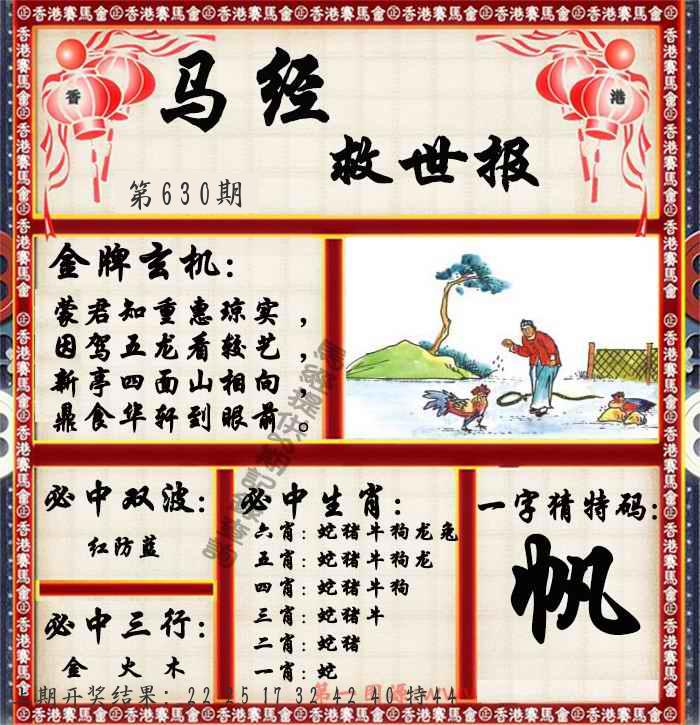 香港賽馬會
香 港
马经
救世报
第630期
金牌玄机:
蒙君知重惠琼实，
因驾五龙看较艺，
新亭四面山相向，
鼎食华轩到眼前。
必中双波:
红防蓝
必中三行:
金 火 木
必中生肖:
六肖:蛇猪牛狗龙兔
五肖:蛇猪牛狗龙
四肖:蛇猪牛狗
三肖:蛇猪牛
二肖:蛇猪
一肖:蛇
一字猜特码:
帆
期开奖结果:22 25 17 32 42 40 特44